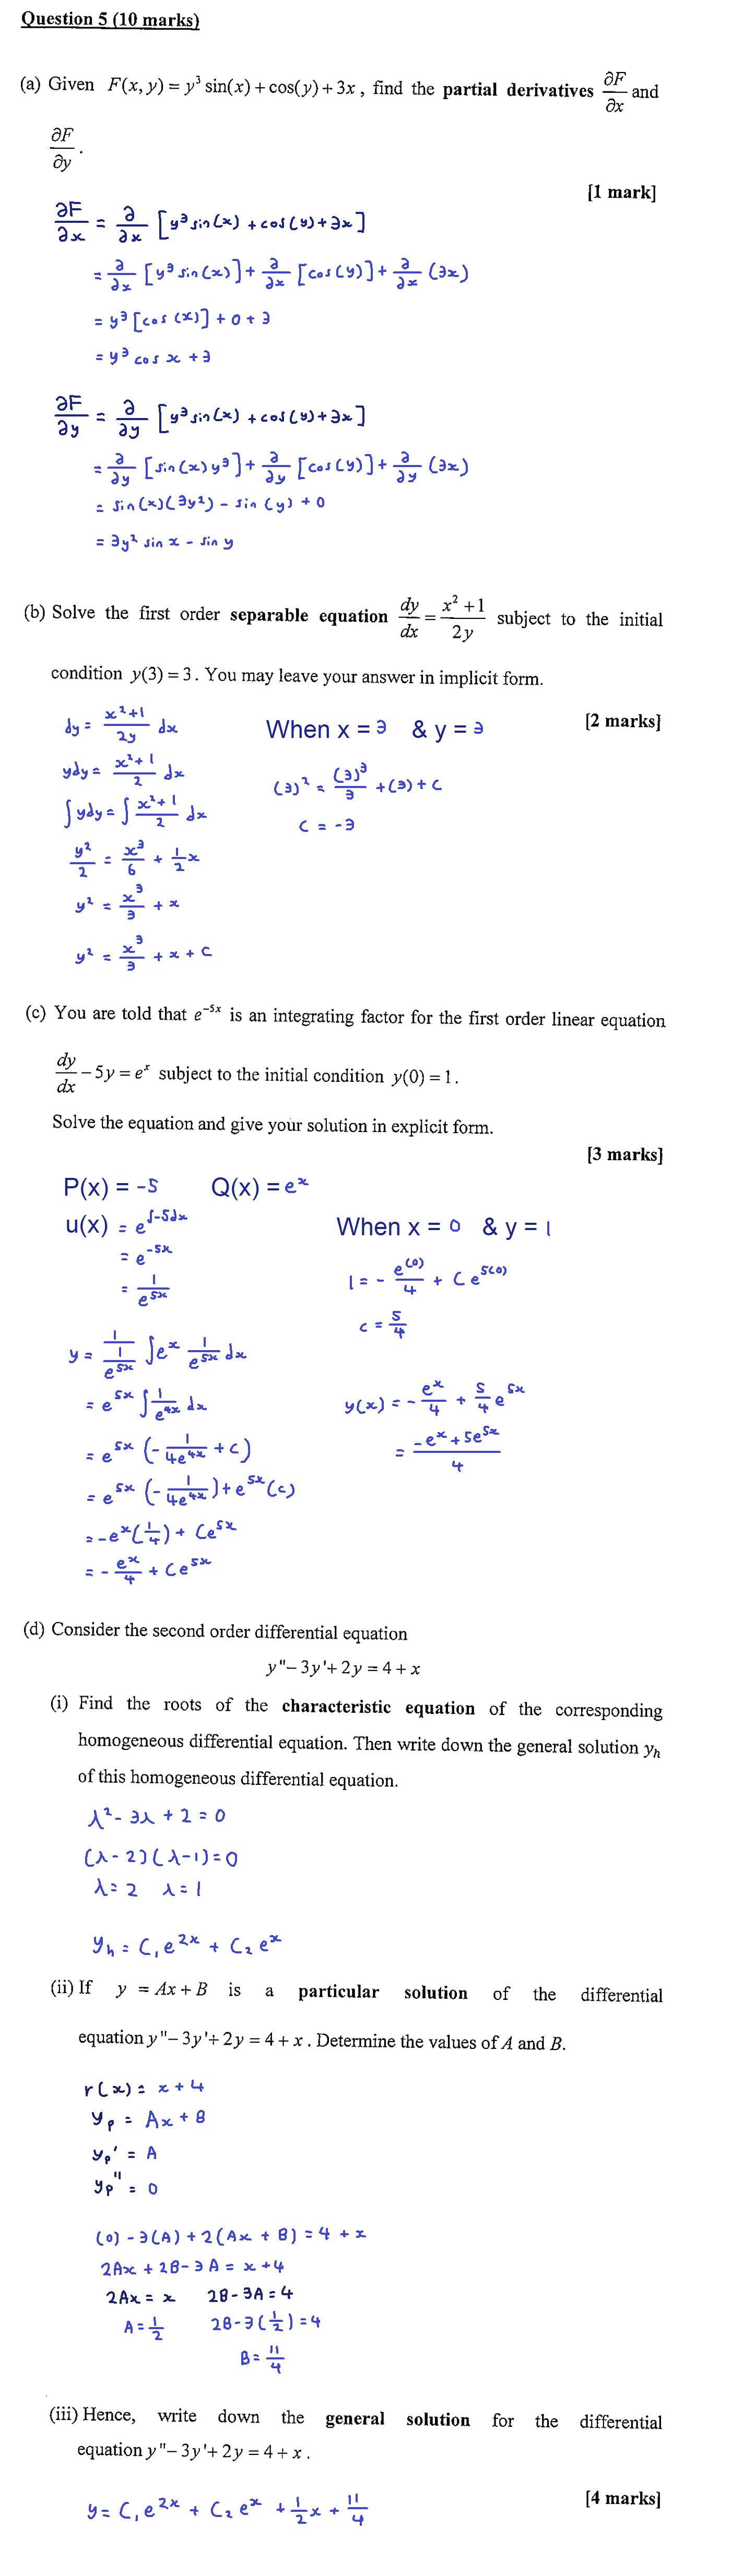 Question 5 (10 marks)
(a) Given F(x, y) = y³ sin(x) + cos(y) + 3x, find the partial derivatives ∂F/∂x and
∂F/∂y.
[1 mark]
∂F/∂x = ∂/∂x [y³ sin(x) + cos(y) + 3x]
= ∂/∂x [y³ sin(x)] + ∂/∂x [cos(y)] + ∂/∂x (3x)
= y³ [cos(x)] + 0 + 3
= y³ cos x + 3
∂F/∂y = ∂/∂y [y³ sin(x) + cos(y) + 3x]
= ∂/∂y [sin(x) y³] + ∂/∂y [cos(y)] + ∂/∂y (3x)
= sin(x)(3y²) - sin(y) + 0
= 3y² sin x - sin y
(b) Solve the first order separable equation dy/dx = (x² + 1)/(2y) subject to the initial
condition y(3) = 3. You may leave your answer in implicit form.
[2 marks]
dy = (x²+1)/(2y) dx
ydy = (x²+1)/2 dx
∫ydy = ∫(x²+1)/2 dx
y²/2 = x³/6 + 1/2 x
y² = x³/3 + x
y² = x³/3 + x + C
When x = 3 & y = 3
(3)² = (3)³/3 + (3) + C
C = -3
(c) You are told that e⁻⁵ˣ is an integrating factor for the first order linear equation
dy/dx - 5y = eˣ subject to the initial condition y(0) = 1.
Solve the equation and give your solution in explicit form.
[3 marks]
P(x) = -5 Q(x) = eˣ
u(x) = e^(∫-5dx)
= e⁻⁵ˣ
= 1/e⁵ˣ
y = 1/(1/e⁵ˣ) ∫eˣ 1/e⁵ˣ dx
= e⁵ˣ ∫1/e⁴ˣ dx
= e⁵ˣ (-1/(4e⁴ˣ) + C)
= e⁵ˣ (-1/(4e⁴ˣ)) + e⁵ˣ(C)
= -eˣ(1/4) + Ce⁵ˣ
= -eˣ/4 + Ce⁵ˣ
When x = 0 & y = 1
1 = -e^(0)/4 + Ce^5(0)
C = 5/4
y(x) = -eˣ/4 + 5/4 e⁵ˣ
= (-eˣ + 5e⁵ˣ)/4
(d) Consider the second order differential equation
y"- 3y'+ 2y = 4 + x
(i) Find the roots of the characteristic equation of the corresponding
homogeneous differential equation. Then write down the general solution yₕ
of this homogeneous differential equation.
λ² - 3λ + 2 = 0
(λ - 2)(λ - 1) = 0
λ = 2 λ = 1
yₕ = C₁e²ˣ + C₂eˣ
(ii) If y = Ax + B is a particular solution of the differential
equation y"- 3y'+ 2y = 4 + x. Determine the values of A and B.
r(x) = x + 4
yₚ = Ax + B
yₚ' = A
yₚ" = 0
(0) - 3(A) + 2(Ax + B) = 4 + x
2Ax + 2B - 3A = x + 4
2Ax = x 2B - 3A = 4
A = 1/2 2B - 3(1/2) = 4
B = 11/4
(iii) Hence, write down the general solution for the differential
equation y"- 3y'+ 2y = 4 + x.
[4 marks]
y = C₁e²ˣ + C₂eˣ + 1/2 x + 11/4